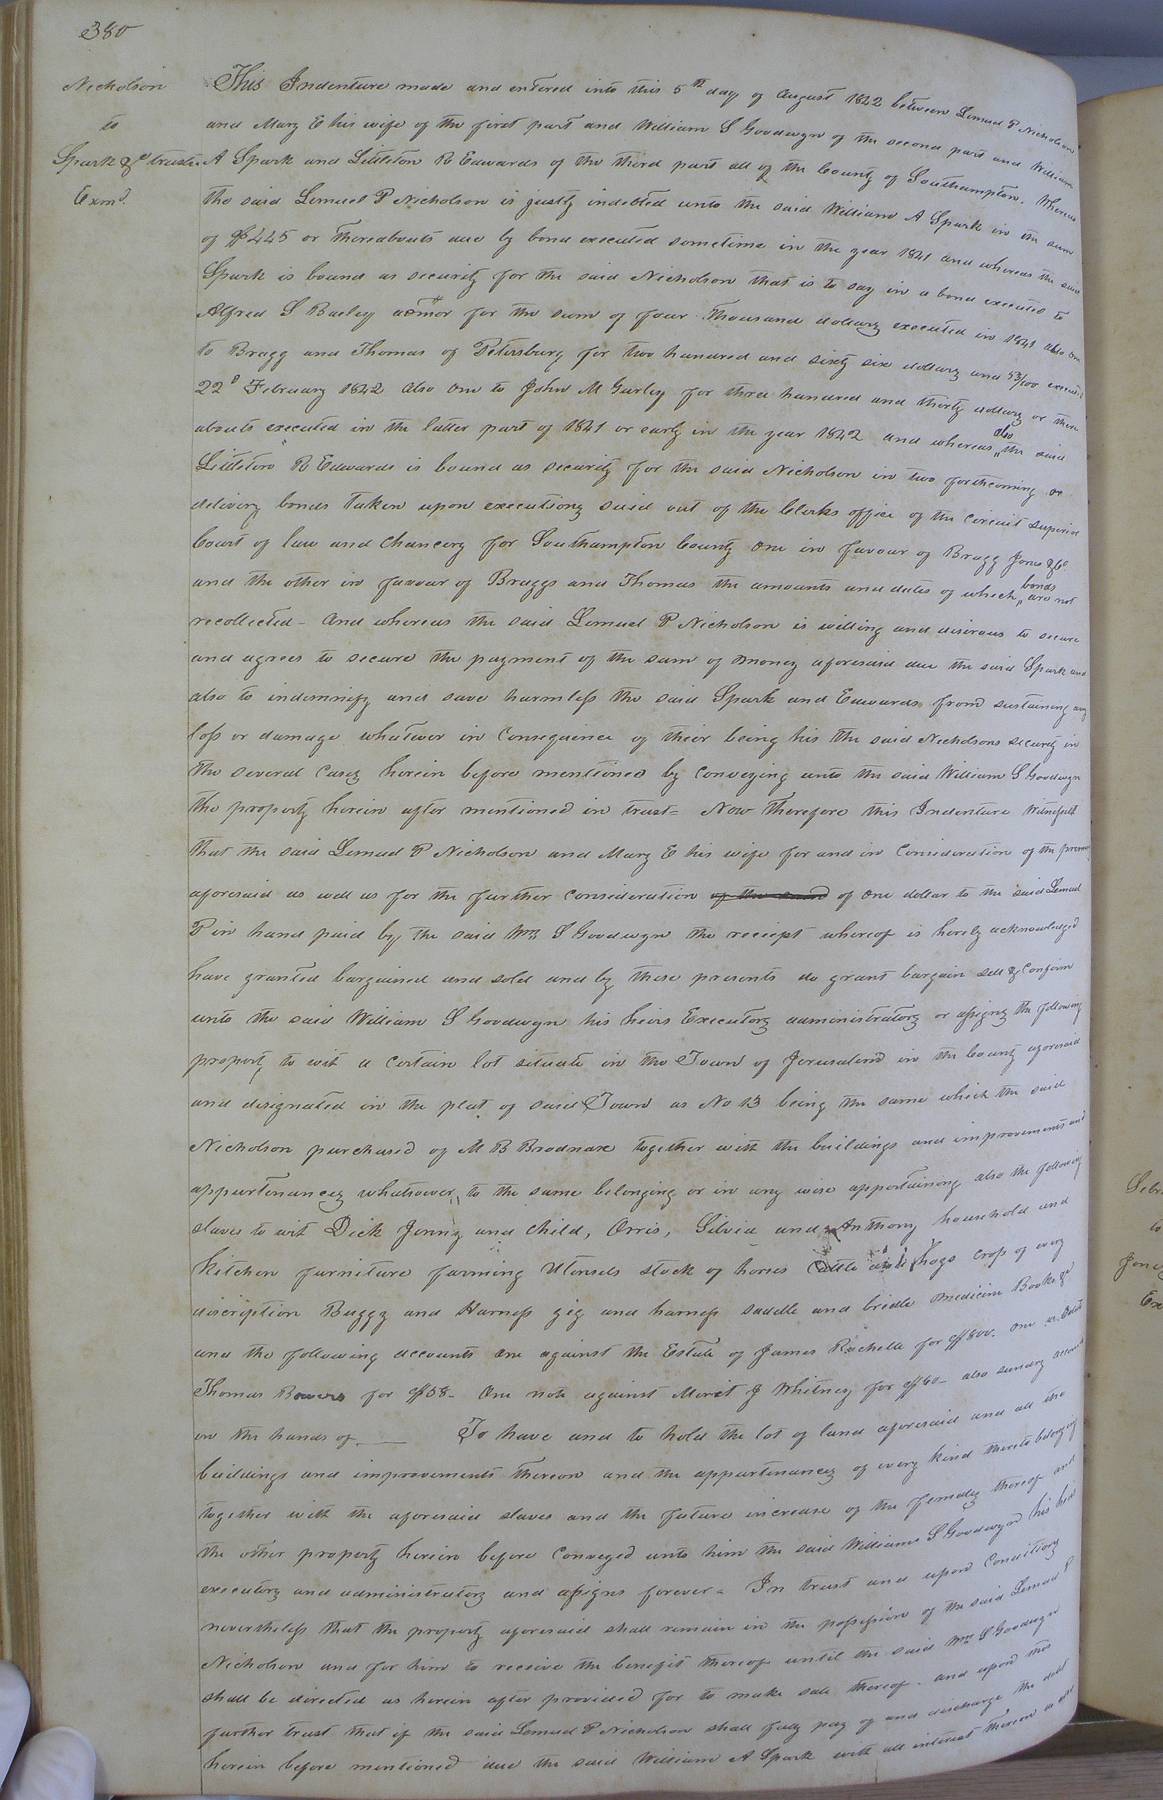 380
Nicholson
to
Spark &c trustee
Exmd.
This Indenture made and entered into this 5th day of August 1842 between Lemuel P Nicholson
and Mary E his wife of the first part and William S Goodwyn of the second part and William
A Spark and Littleton R Edwards of the third part all of the County of Southampton. Whereas
the said Lemuel P Nicholson is justly indebted unto the said William A Spark in the sum
of $445 or thereabouts due by bond executed sometime in the year 1841 and whereas the said
Spark is bound as security for the said Nicholson that is to say in a bond executed to
Alfred S Barley admor for the sum of four thousand dollars executed in 1841 also one
to Bragg and Thomas of Petersburg for two hundred and sixty six dollars and 53/100 executed
22d February 1842 also one to John M Gurley for three hundred and thirty dollars or there
abouts executed in the latter part of 1841 or early in the year 1842 and whereas also the said
Littleton R Edwards is bound as security for the said Nicholson in two forthcoming or
delivery bonds taken upon executions said out of the Clerks office of the Circuit Superior
Court of law and Chancery for Southampton County one in favour of Bragg Jones & Co
and the other in favour of Braggs and Thomas the amounts and dates of which bonds are not
recollected - And whereas the said Lemuel P Nicholson is willing and desirous to secure
and agrees to secure the payment of the sum of money aforesaid due the said Spark and
also to indemnify and save harmless the said Spark and Edwards from sustaining any
loss or damage whatever in Consequence of their being his the said Nicholsons security in
the several Cases herein before mentioned by Conveying unto the said William S Goodwyn
the property herein after mentioned in trust = Now Therefore this Indenture Witnesseth
that the said Lemuel P Nicholson and Mary E his wife for and in Consideration of the
aforesaid as well as for the further Consideration of the of one dollar to the said Lemuel
P in hand paid by the said Wm S Goodwyn the receipt whereof is hereby acknowledged
have granted bargained and sold and by these presents do grant bargain sell & Confirm
unto the said William S Goodwyn his heirs Executors administrators or assigns the following
property to wit a Certain lot situate in the Town of Jerusalem in the County aforesaid
and designated in the plat of said Town as No 13 being the same which the said
Nicholson purchased of M B Brodnax together with the buildings and improvements and
appurtenances whatsoever to the same belonging or in any wise appertaining also the following
slaves to wit Dick Jenny and child, Orris, Silvia and Anthony household and
Kitchen furniture farming Utensels stock of horses Cattle and hogs Crop of every
discription Buggy and Harness gig and harness saddle and bridle medicine Books &c
and the following accounts one against the Estate of James Rochelle for $800. One
Thomas Bowers for $58 - One note against J Whitney for $60 - also sundry
in the hands of To have and to hold the lot of land aforesaid and all the
buildings and improvements thereon and the appurtenances of every kind thereto belonging
together with the aforesaid slaves and the future increase of the females thereof and
the other property herein before Conveyed unto him the said William S Goodwyn his heirs
executors and administrators and assigns forever = In trust and upon Conditions
nevertheless that the property aforesaid shall remain in the possession of the said Lemuel P
Nicholson and for him to receive the benefit thereof until the said Wm S Goodwyn
shall be directed as herein after provided for to make sale thereof. and upon the
further trust that if the said Lemuel P Nicholson shall fully pay of and discharge the debt
herein before mentioned due the said William A Spark with all interest thereon